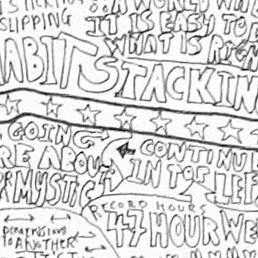 SLIPPING
A WORLD WH
IT IS EASY TO B
WHAT IS RIGH
ABIT STACKIN
GOING
RE ABOU
MYSTIC
CONTINUE
IN TOP LEF
RECORD HOURS
47 HOUR WE
DIMENSION
TO ANOTHER